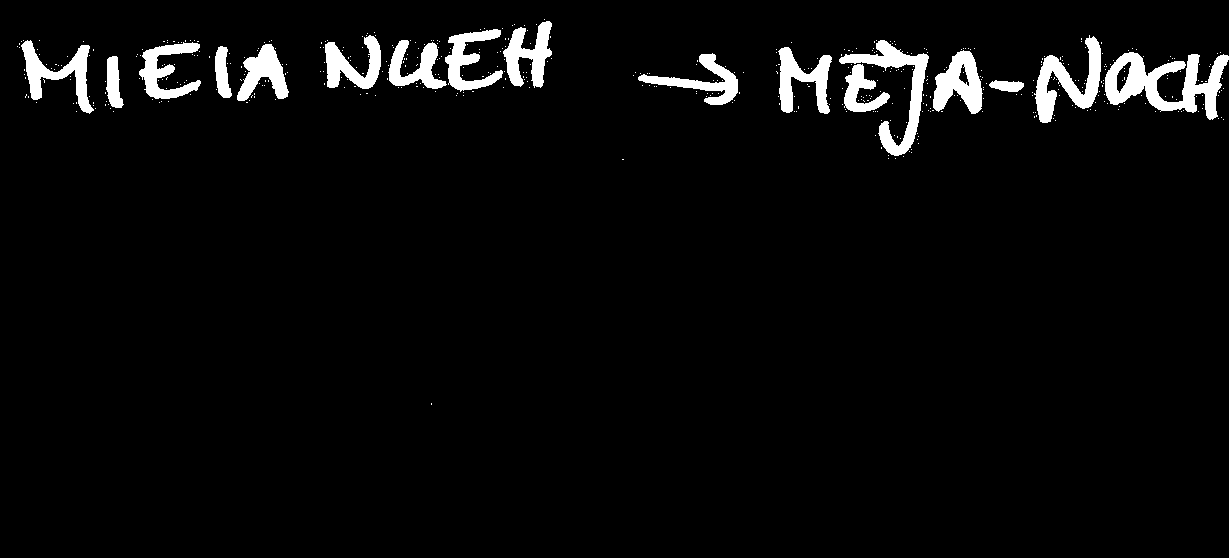 MIEIA NUEH → MEJA-NOCH